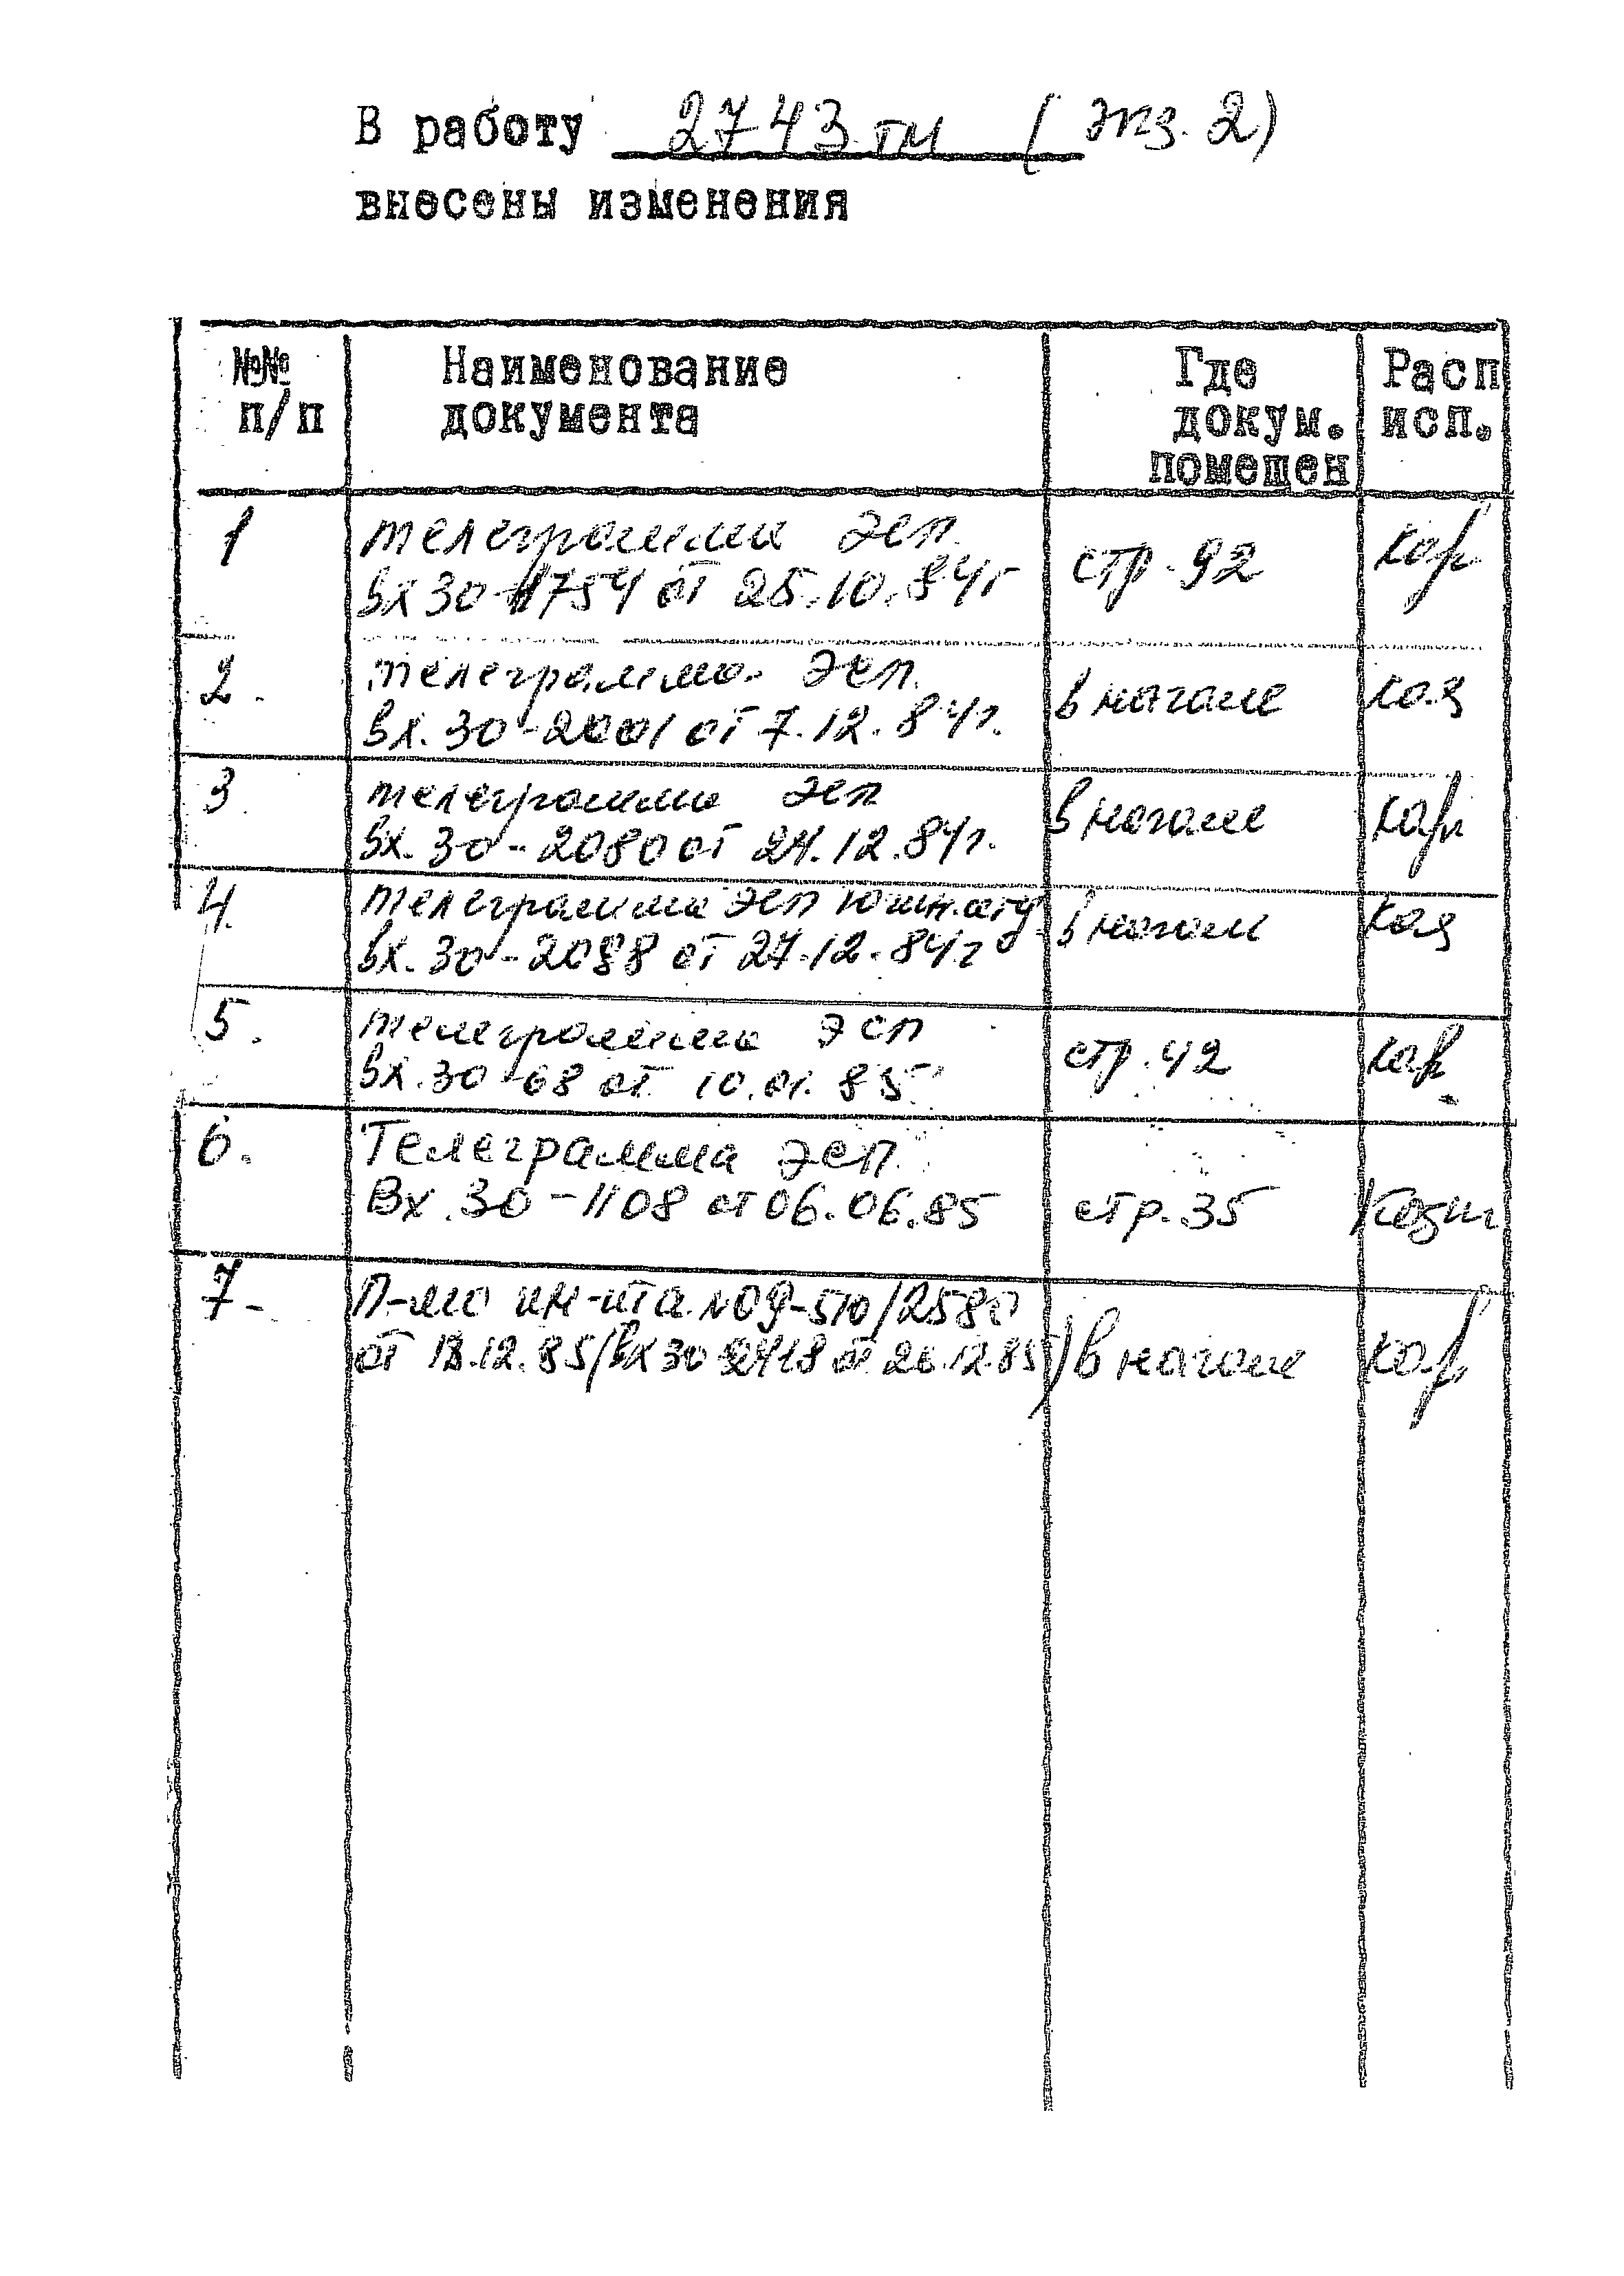 В работу 2743 тм (экз. 2)
внесены изменения
№№ п/п
Наименование документа
Где докум. помещен
Расп исп.
1 телеграмма ЭСП стр. 92
вх 30-1754 от 25.10.84г
2. телеграмма ЭСП. в начале
вх. 30-2001 от 7.12.84г.
3 телеграмма ЭСП в начале
вх. 30-2080 от 24.12.84г.
4. телеграмма ЭСП в начале
вх. 30-2088 от 27.12.84г
5. телеграмма ЭСП стр. 42
вх. 30-68 от 10.01.85
6. Телеграмма ЭСП.
Вх. 30-1108 от 06.06.85 стр. 35
7- П-мо ин-та №09-510/2580
от .12.85 (вх 30-2418 от 26.12.85) в начале